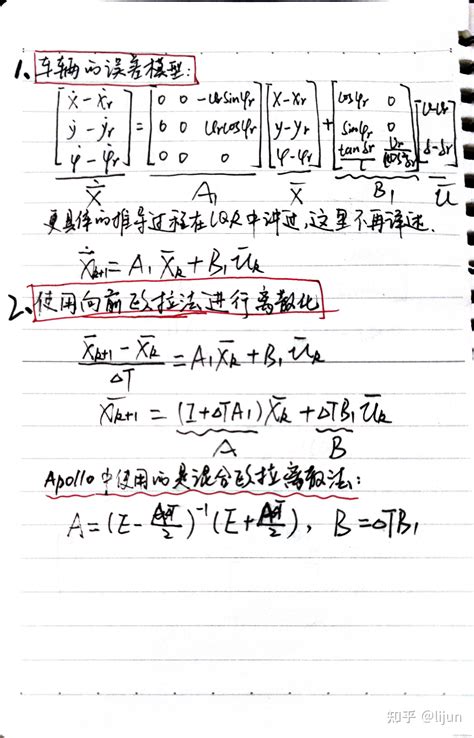 1、车辆的误差模型:
[ẋ-ẋr; ẏ-ẏr; φ̇-φ̇r] = [0 0 -υrsinφr; 0 0 υrcosφr; 0 0 0] [x-xr; y-yr; φ-φr] + [cosφr 0; sinφr 0; tanδr/L υr/(Lcos²δr)] [υ-υr; δ-δr]
Ẋ̄ A₁ X̄ B₁ Ū
更具体的推导过程在LQR中讲过,这里不再详述.
Ẋ̄k+1 = A₁X̄k + B₁ūk
2、使用向前欧拉法进行离散化
(X̄k+1 - X̄k)/ΔT = A₁X̄k + B₁ūk
X̄k+1 = (I+ΔTA₁)X̄k + ΔTB₁ūk
A B
Apollo中使用的是混合欧拉离散法:
A=(E-AT/2)⁻¹(E+AT/2), B=ΔTB₁
知乎 @lijun